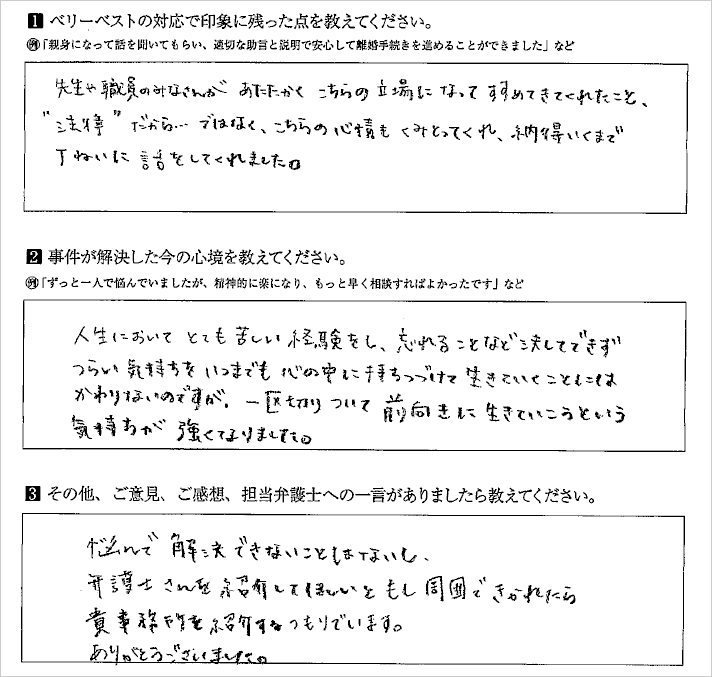 1 ベリーベストの対応で印象に残った点を教えてください。
例「親身になって話を聞いてもらい、適切な助言と説明で安心して離婚手続きを進めることができました」など
先生や職員のみなさんが あたたかく こちらの立場になって すすめてきてくれたこと、
"法律" だから… ではなく、こちらの心情も くみとってくれ、納得いくまで
丁ねいに 話をしてくれました。
2 事件が解決した今の心境を教えてください。
例「ずっと一人で悩んでいましたが、精神的に楽になり、もっと早く相談すればよかったです」など
人生において とても苦しい経験をし、忘れることなど決してできず
つらい気持ちを いつまでも 心の中に持ちつづけて 生きていくことには
かわりないのですが、一区切りついて 前向きに生きていこうという
気持ちが 強くなりました。
3 その他、ご意見、ご感想、担当弁護士への一言がありましたら教えてください。
悩んで 解決できないことはないし、
弁護士さんを紹介してほしいと もし周囲できかれたら
貴事務所を紹介するつもりでいます。
ありがとうございました。